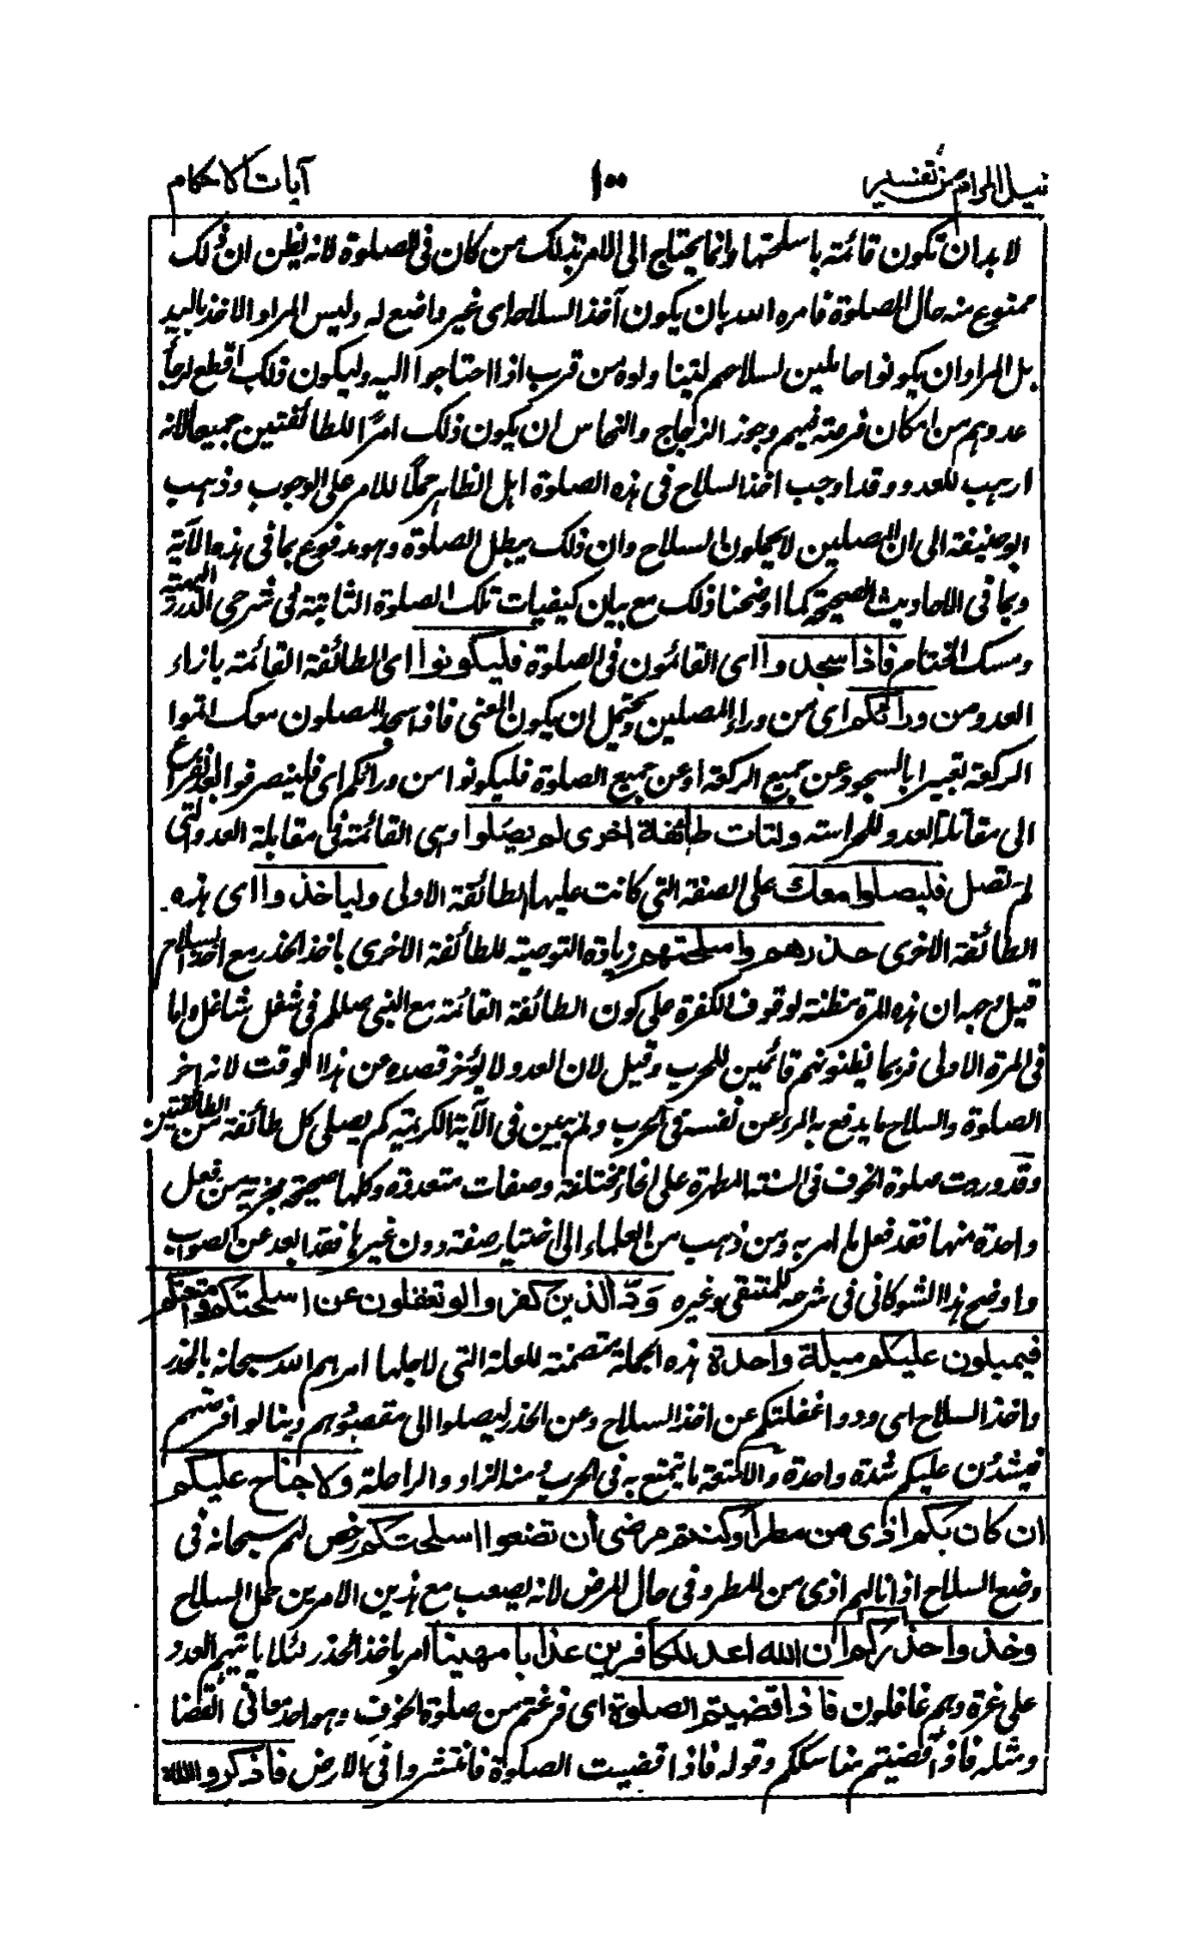 نيل المرام من تفسير ١٠٠ آيات الاحكام
لا بد ان تكون قائمة باسلحتها وانما يحتاج الى الامر بذلك من كان فى الصلوة لانه يظن ان ذلك
ممنوع منه حال الصلوة فامره الله بان يكون آخذ السلاح اى غير واضع له وليس المراد الاخذ باليد
بل المراد ان يكونوا حاملين لسلاحهم ليتناولوه من قرب اذا احتاجوا اليه وليكون ذلك اقطع لرجاء
عدوهم من امكان فرصته فيهم وجوز الزجاج والنحاس ان يكون ذلك امرًا للطائفتين جميعا لانه
ارهب للعدو وقد اوجب اخذ السلاح فى هذه الصلوة اهل الظاهر حملًا للامر على الوجوب وذهب
ابو حنيفة الى ان المصلين لا يحملون السلاح وان ذلك يبطل الصلوة وهو مدفوع بما فى هذه الآية
وبما فى الاحاديث الصحيحة كما اوضحنا ذلك مع بيان كيفيات تلك الصلوة الثابتة فى شرحى الدرر البهية
ومسك الختام فاذا سجدوا اى القائمون فى الصلوة فليكونوا اى الطائفة القائمة بازاء
العدو من ورائكم اى من وراء المصلين ويحتمل ان يكون المعنى فاذا سجد المصلون معك اتموا
الركعة تعبيرا بالسجود عن جميع الركعة او عن جميع الصلوة فليكونوا من ورائكم اى فلينصرفوا بعد الفراغ
الى مقابلة العدو للحراسة ولتات طائفة اخرى لم يصلوا وهى القائمة فى مقابلة العدو التى
لم تصل فليصلوا معك على الصفة التى كانت عليها الطائفة الاولى ولياخذوا اى هذه
الطائفة الاخرى حذرهم واسلحتهم زيادة التوصية للطائفة الاخرى باخذ الحذر مع اخذ السلاح
قيل وجهه ان هذه المرة مظنة لوقوف الكفرة على كون الطائفة القائمة مع النبى صللم فى شغل شاغل واما
فى المرة الاولى فربما يظنونهم قائمين للحرب وقيل لان العدو لا يؤخر قصده عن هذا الوقت لانه آخر
الصلوة والسلاح ما يدفع به المرء عن نفسه فى الحرب ولم يبين فى الآية الكريمة كم يصلى كل طائفة من الطائفتين
وقد وردت صلوة الخوف فى السنة المطهرة على انحاء مختلفة وصفات متعددة وكلها صحيحة مجزية من فعل
واحدة منها فقد فعل ما امر به ومن ذهب من العلماء الى اختيار صفة دون غيرها فقد ابعد عن الصواب
واوضح هذا الشوكانى فى شرحه للمنتقى وغيره ودّ الذين كفروا لو تغفلون عن اسلحتكم وامتعتكم
فيميلون عليكم ميلة واحدة هذه الجملة متضمنة للعلة التى لاجلها امرهم الله سبحانه بالحذر
واخذ السلاح اى ودوا غفلتكم عن اخذ السلاح وعن الحذر ليصلوا الى مقصودهم وينالوا فرصتهم
فيشدّون عليكم شدة واحدة والامتعة ما يتمتع به فى الحرب ومنه الزاد والراحلة ولا جناح عليكم
ان كان بكم اذى من مطر او كنتم مرضى ان تضعوا اسلحتكم رخص لهم سبحانه فى
وضع السلاح اذا نالهم اذى من المطر وفى حال المرض لانه يصعب مع هذين الامرين حمل السلاح
وخذوا حذركم ان الله اعد للكافرين عذابا مهينا امر باخذ الحذر لئلا ياتيهم العدو
على غرة وهم غافلون فاذا قضيتم الصلوة اى فرغتم من صلوة الخوف وهو احد معانى القضا
ومثله فاذا قضيتم مناسككم وقوله فاذا قضيت الصلوة فانتشروا فى الارض فاذكروا الله